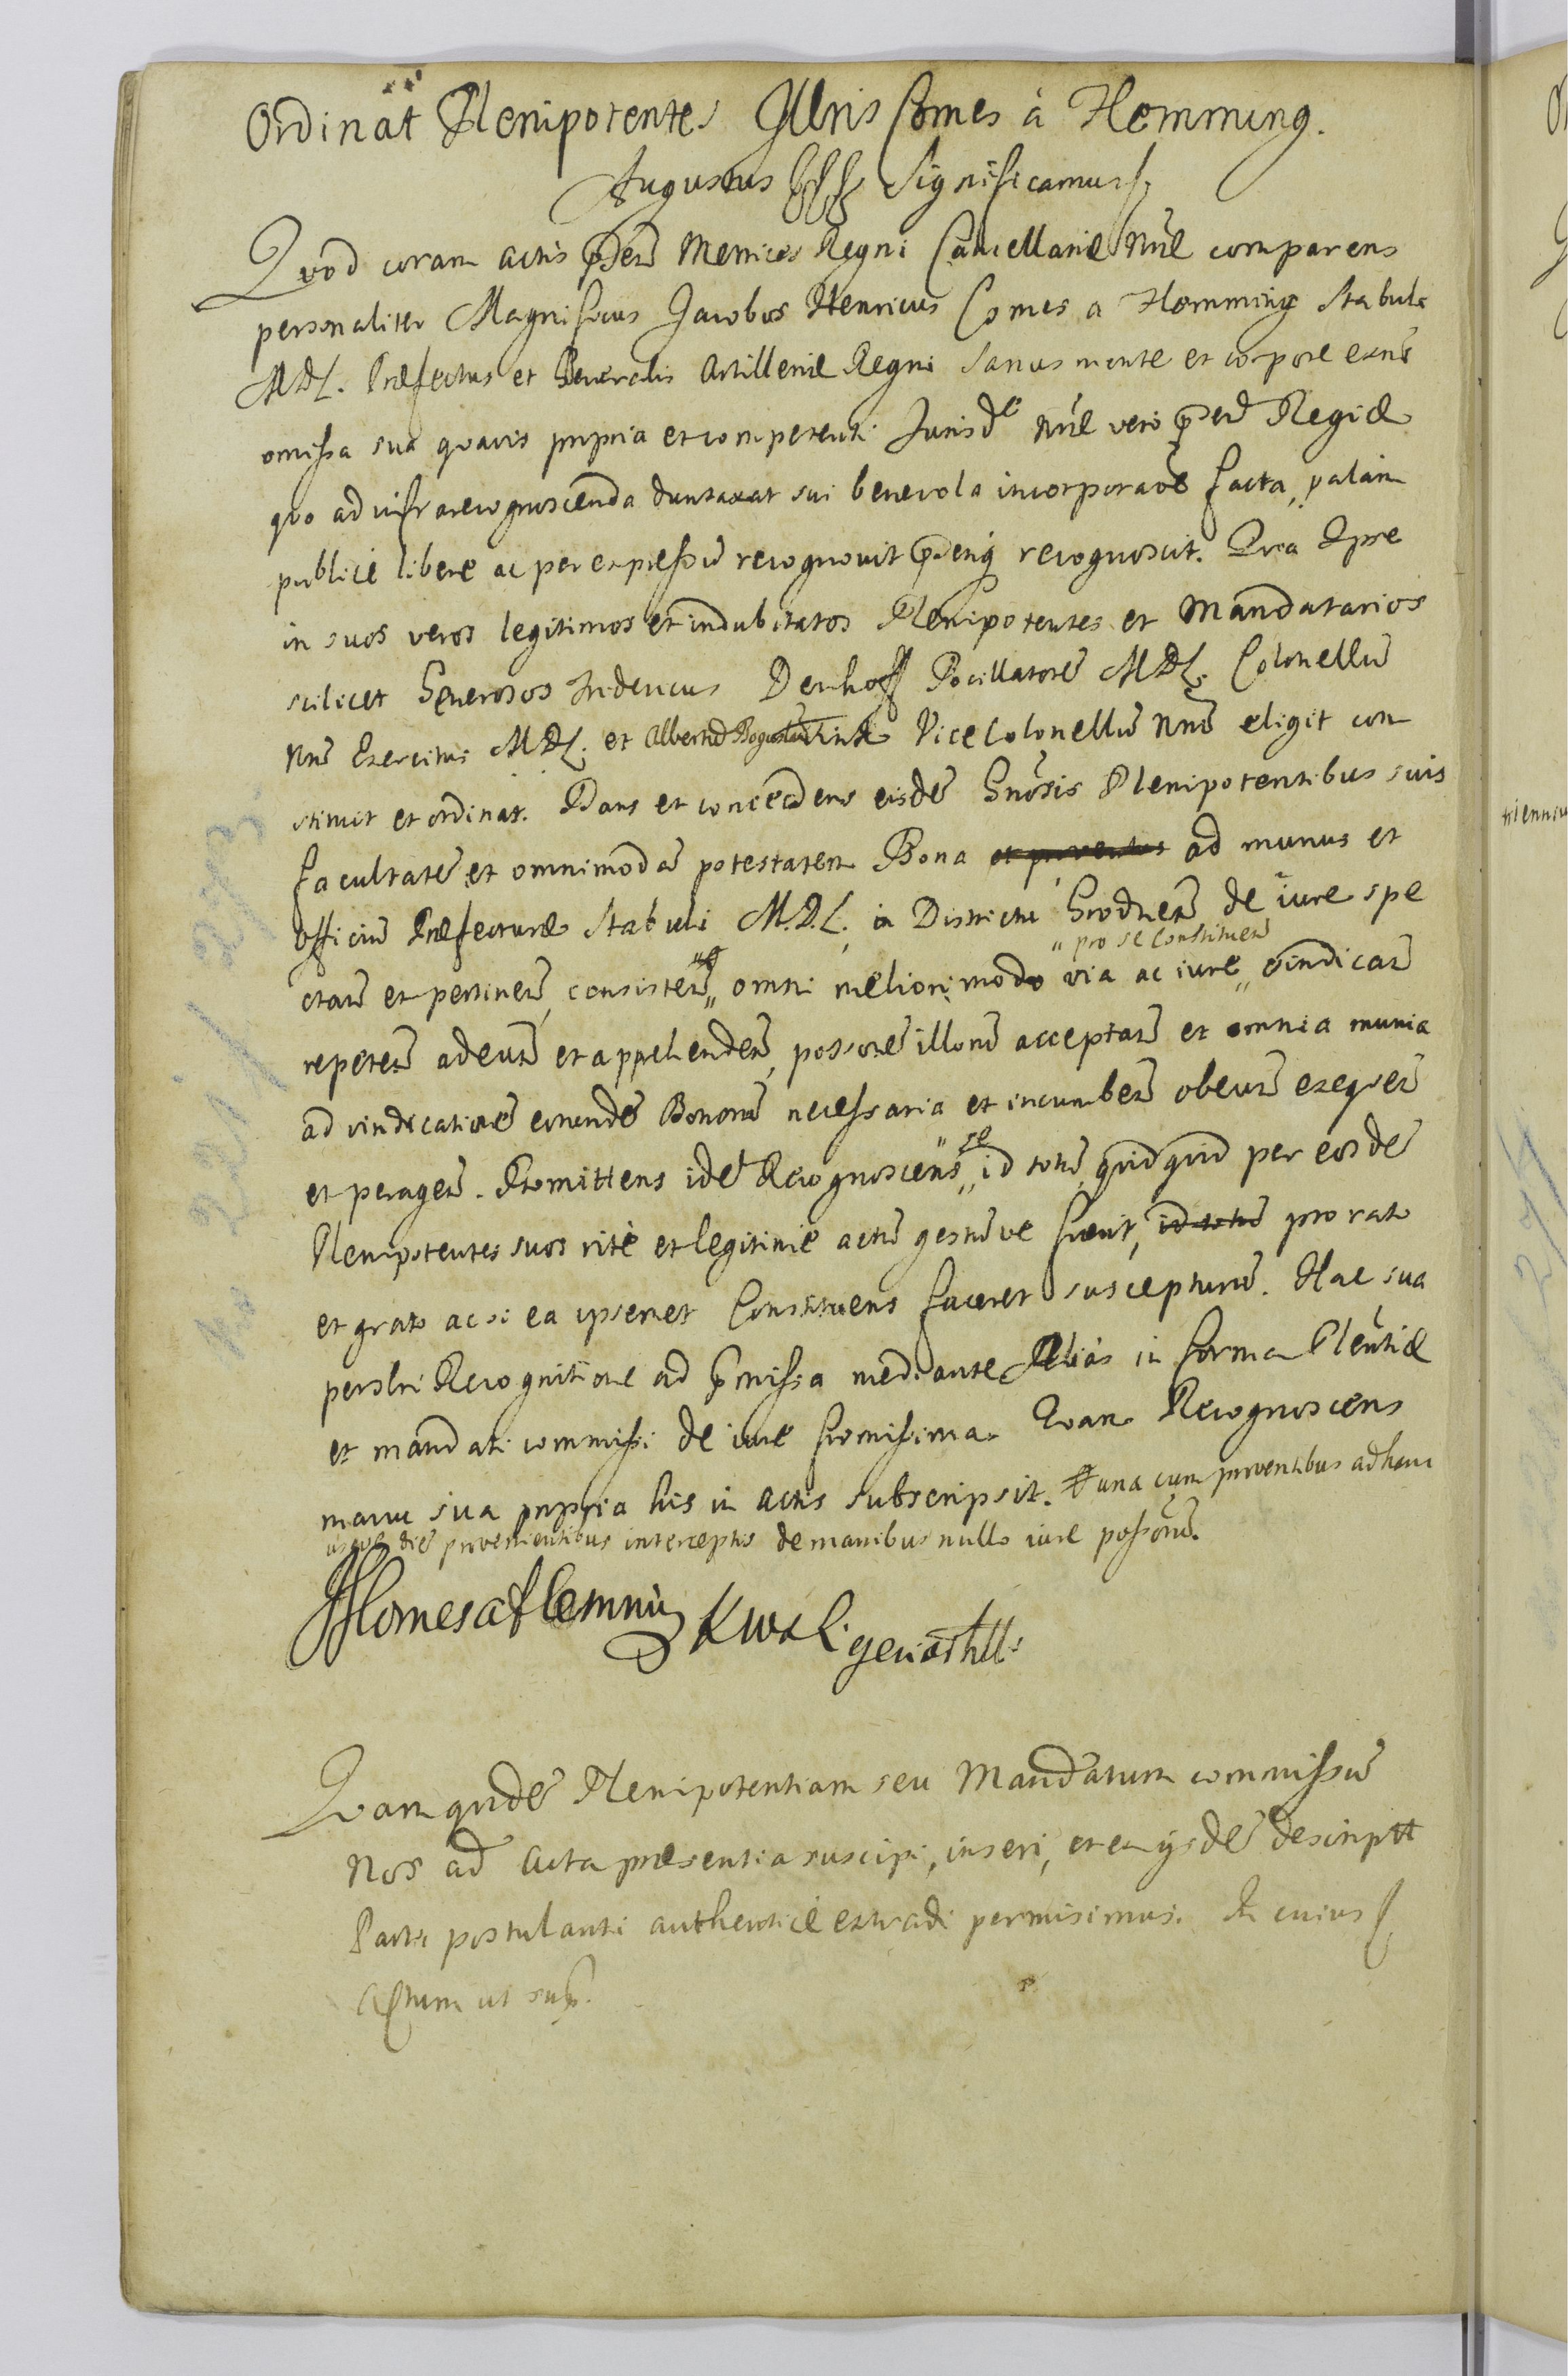 Ordinat Plenipotentes Illris Comes à Flemming.
Augustus Significamus
Quod coram actis pñtibus Metrices Regni Cancellariæ Nræ comparens
personaliter Magnificus Jacobus Henricus Comes a Flemming Stabuli
M.D.L. Præfectus et Generalis Artilleriæ Regni sanus mente et corpore exñs
omissa sua quavis propria et competenti Jurisdne Nræ vero Regiæ
quo ad infrarecognoscenda duntaxat sui benevola incorporãoe facta, palam
publicè liberè ac per expressũ recognovit recognoscit. Quia Ipse
in suos veros legitimos et indubitatos Plenipotentes et Mandatarios
scilicet Generosos Fridericus Denhoff Pocillatorẽ M.D.L. Colonellũ
Nrũ Exercitus M.D.L. et Albertũ Vice Colonellũ Nrũ eligit con
stituit et ordinat. Dans et concedens eisdẽ Gnõsis Plenipotentibus suis
facultatẽ et omnimodã potestatem Bona et proventus ad munus et
officiũ Præfecturæ Stabuli M.D.L. in Districtu Grodneñ de iure spe
ctañ et pertineñ, consisteñ omni meliori modo via ac iure
" pro se Constitueñ
vindicañ
repeteñ adeuñ et apprehendeñ, possorẽ illorũ acceptañ et omnia munia
ad vindicationẽ eorundẽ Bonorũ necessaria et incumbeñ obeuñ exequeñ
et perageñ. Promittens idẽ Recognoscens " se id totũ quidquid per eosdẽ
Plenipotentes suos ritè et legitimè actũ gestũve fuerit, id totũ pro rato
et grato ac si ea ipsemet Constituens faceret suscepturũ. Hac sua
persnli Recognitione ad præmissa mediante Alias in forma Plentiæ
et mandati commissi de iure firmissima. Quam Recognoscens
manu sua propria his in actis subscripsit. # una cum proventibus ad hanc
usque diẽ provenientibus interceptis de manibus nullo iure possorũ.
JHComes a flemming KWXL gen: artill:
Quam quidẽ Plenipotentiam seu Mandatum commissũ
Nos ad Acta præsentia suscipi, inseri, et ex ijsdẽ descriptt
Parti postulanti authenticè extradi permisimus. In cuius
Actum ut sup.
trienniu